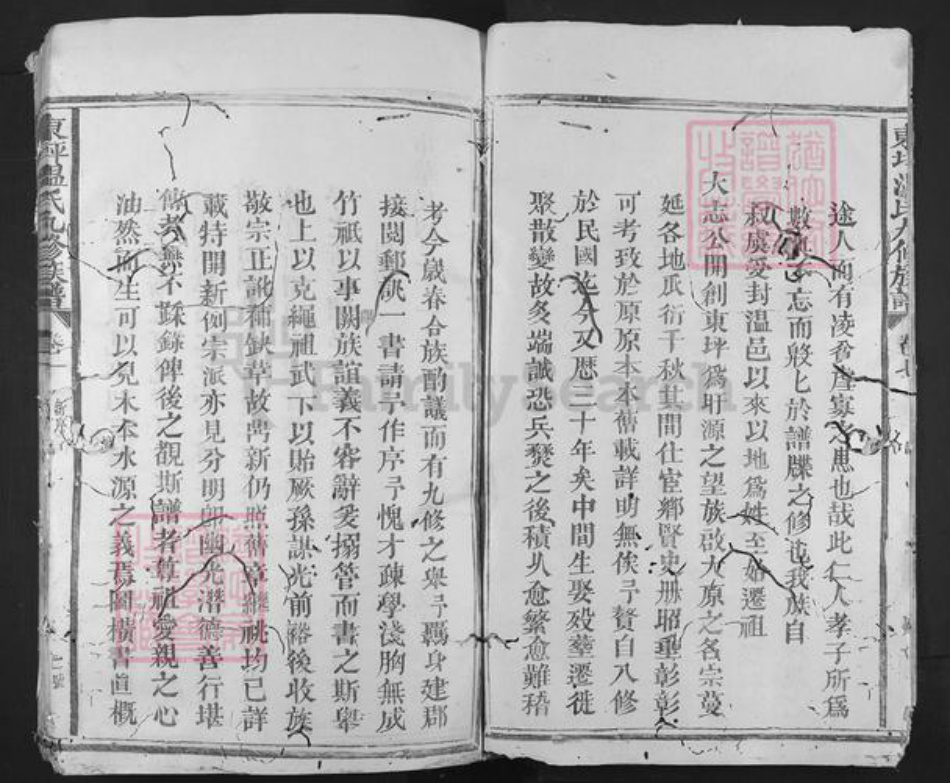 東坪温氏九修族譜
途人而有凌眾暴寡之患也哉此仁人孝子所爲
數典不忘而殷殷於譜牒之修也我族自
叔虞受封温邑以來以地爲姓至始遷祖
大志公開創東坪爲盱源之望族啟大原之各宗蔓
延各地瓜衍千秋其間仕宦鄉賢史册昭垂彰彰
可考致於原原本本舊載詳明無俟予贅自八修
於民國迄今又歷三十年矣中間生娶殁塟遷徙
聚散變故多端誠恐兵燹之後積久愈繁愈難稽
考今歲春合族酌議而有九修之舉予羈身建郡
接閱郵訊一書請予作序予愧才疎學淺胸無成
竹祇以事關族誼義不容辭爰搦管而書之斯舉
也上以克繩祖武下以貽厥孫謀光前裕後收族
敬宗正訛補缺革故鼎新仍照舊章繼祧均已詳
載特開新例宗派亦見分明卽幽光潛德善行堪
傳者無不踩錄俾後之覩斯譜者尊祖愛親之心
油然而生可以見木本水源之義焉圖積書直概
東坪温氏九修族譜
卷一
新序
FamilySearch